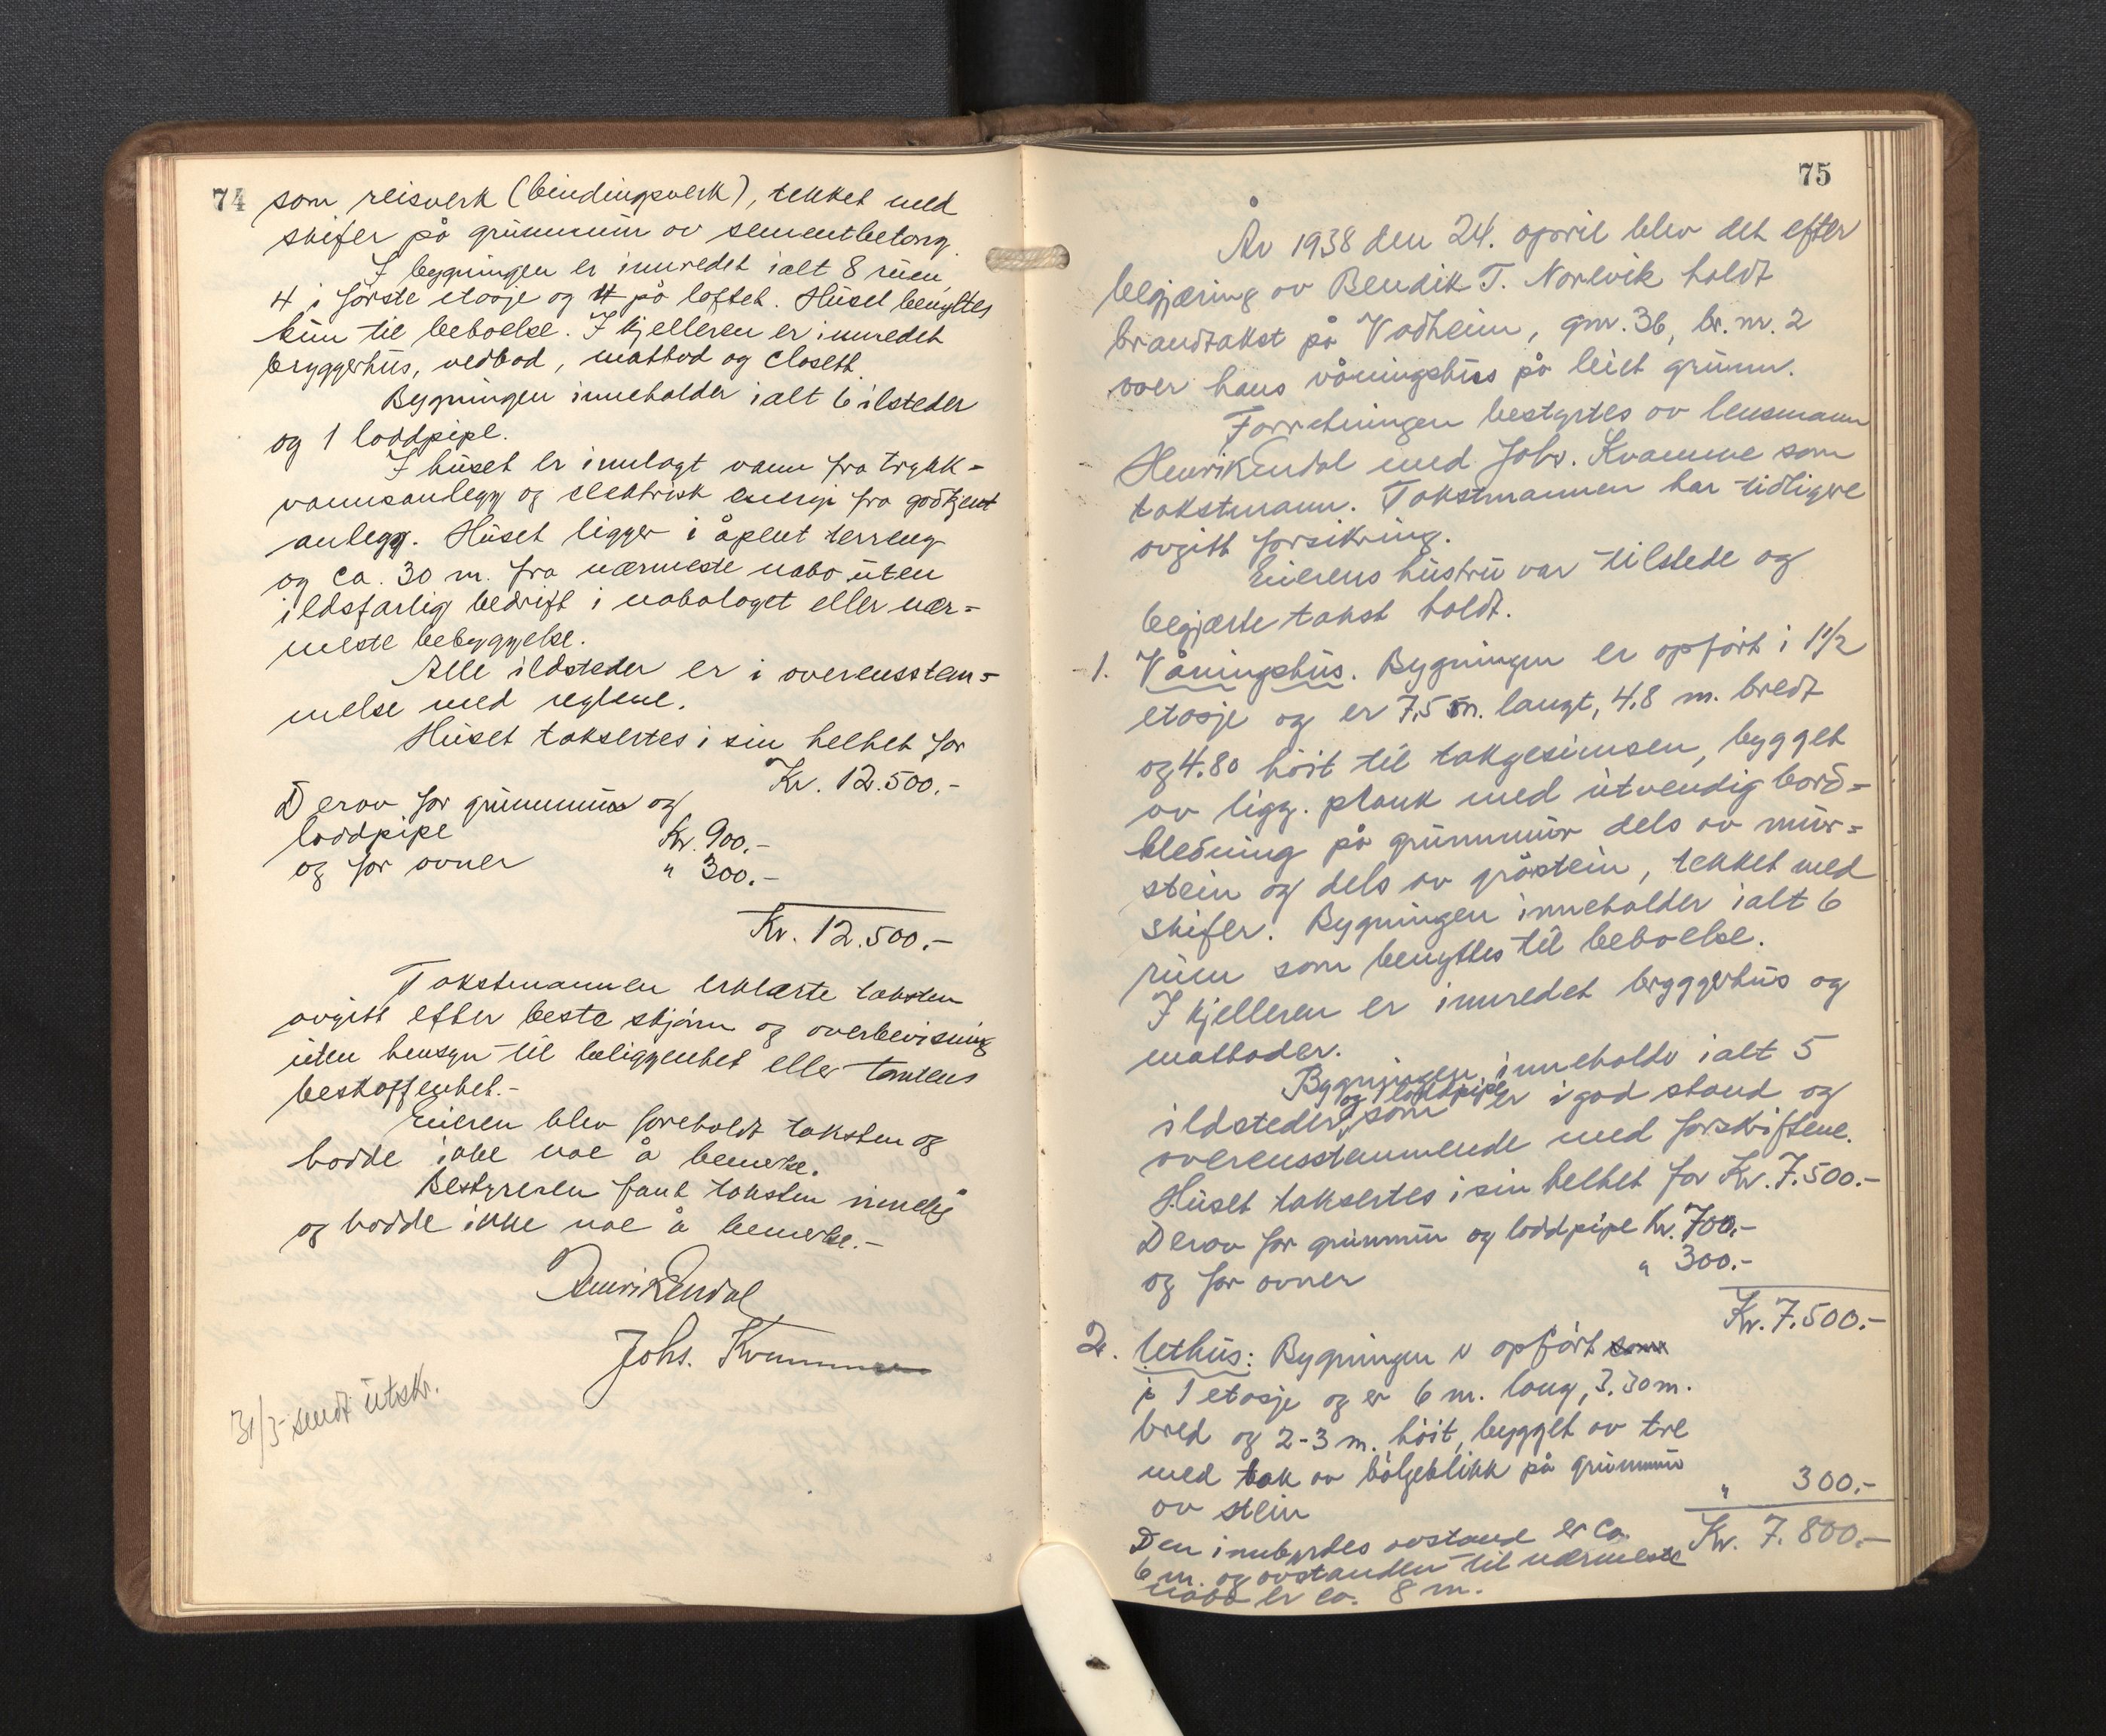 74
som reisverk (bindingsverk), tekket med
skifer på grunnmur av sementbetong.
I bygningen er innredet ialt 8 rum,
4 i første etasje og 4 på loftet. Huset benyttes
kun til beboelse. I kjelleren er innredet
bryggerhus, vedbod, matbod og closett.
Bygningen inneholder ialt 6 ilsteder
og 1 loddpipe.
I huset er innlagt vann fra trykk-
vannsanlegg og elektrisk energi fra godkjent
anlegg. Huset ligger i åpent terreng
og ca. 30 m. fra nærmeste nabo uten
ildsfarlig bedrift i nabolaget eller nær-
meste bebyggelse.
Alle ildsteder er i overensstem-
melse med reglene.
Huset taksertes i sin helhet for
Kr. 12.500.-
Derav for grunnmur og
loddpipe Kr. 900.-
og for ovner " 300.-
Kr. 12.500.-
Takstmannen erklærte taksten
avgitt efter beste skjønn og overbevisning
uten hensyn til beliggenhet eller tomtens
beskaffenhet.-
Eieren blev foreholdt taksten og
hadde ikke noe å bemerke.
Bestyreren fant taksten rimelig
og hadde ikke noe å bemerke.-
Henrik Endal
Johs. Kvamme
31/3 sendt utskr.
75
År 1938 den 24. april blev det efter
begjæring av Bendik T. Norevik holdt
brandtakst på Vadheim, gnr. 36, br. nr. 2
over hans våningshus på leiet grunn.
Forretningen bestyrtes av lensmann
Henrik Endal med Johs. Kvamme som
takstmann. Takstmannen har tidligere
avgitt forsikring.
Eierens hustru var tilstede og
begjærte takst holdt.
1. Våningshus. Bygningen er opført i 1 1/2
etasje og er 7,5 m. langt, 4.8 m. bredt
og 4.80 høit til takgesimsen, bygget
av ligg. plank med utvendig bord-
kledning på grunnmur dels av mur-
stein og dels av gråstein, tekket med
skifer. Bygningen inneholder ialt 6
rum som benyttes til beboelse.
I kjelleren er innredet bryggerhus og
matboder.
Bygningen inneholder ialt 5
ildsteder og 1 loddpipe som er i god stand og
overensstemmende med forskriftene.
Huset taksertes i sin helhet for Kr. 7.500.-
Derav for grunnmur og loddpipe Kr. 700.-
og for ovner " 300.-
Kr. 7.500.-
2. Uthus: Bygningen er opført som
i 1 etasje og er 6 m. lang, 3.30 m.
bred og 2-3 m. høit, bygget av tre
med tak av bølgeblikk på grunnmur
av stein " 300.-
Den innbyrdes avstand er ca. Kr. 7.800.-
6 m. og avstanden til nærmeste
nabo er ca. 8 m.